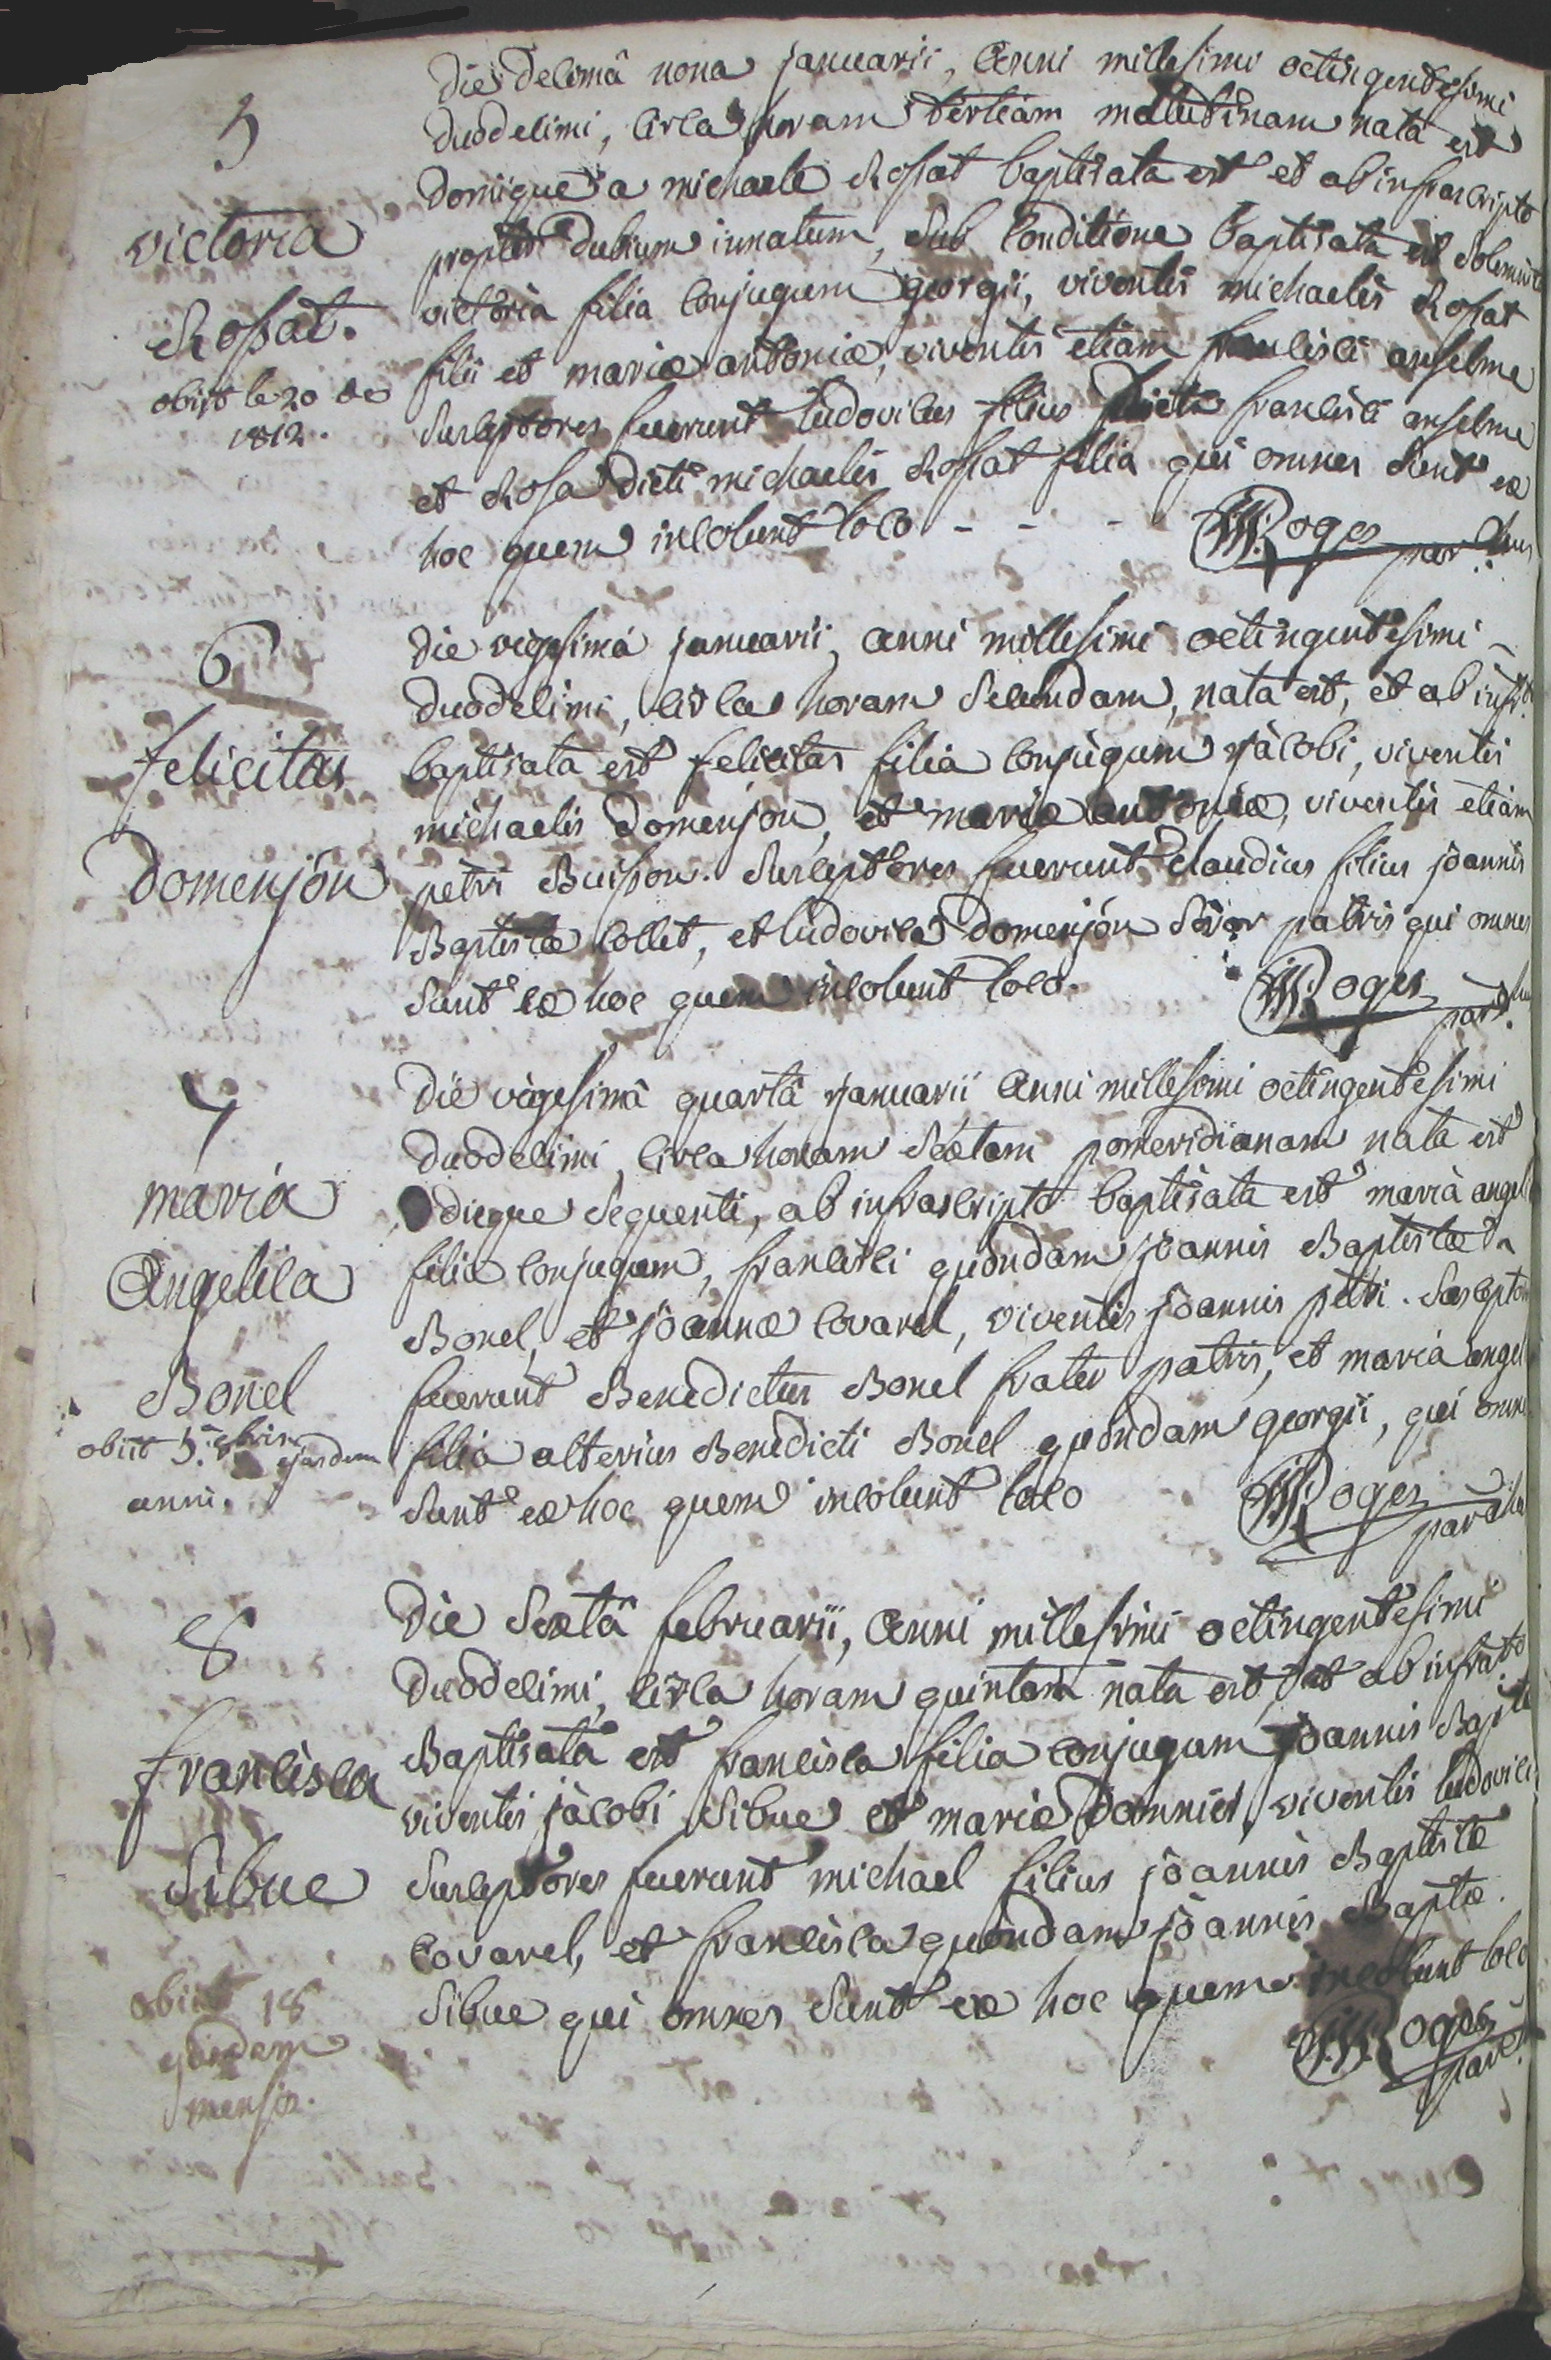 5
victoria
Rossat.
obiit le 20 xb
1812.
die decimâ nona januarii, Anni millesimi octingentesimi
duodecimi, circa horam tertiam matutinam nata est
domique a michaele Rossat baptisata est et ab infrascripto
propter dubium innatum, sub conditione baptisata est solemnite
victoria filia conjugum georgii, viventis michaelis Rossat
filii et mariæ antoniæ, viventis etiam francisci anselme
Susceptores fuerunt ludovicus filius dicti francisci anselme
et Rosa dicti michaelis Rossat filia qui omnes sunt ex
hoc quem incolunt loco - - - Roges par.chus
6
felicitas
domenjon
die vigesimâ januarii, anni millesimi octingentesimi -
duodecimi, circa horam secundam, nata est, et ab infr.
baptisata est felicitas filia conjugum jacobi, viventis
michaelis domenjon, et mariæ antoniæ, viventis etiam
petri Buisson. Susceptores fuerunt Claudius filius joannis
Baptistæ collet, et ludovica domenjon soror patris qui omnes
sunt ex hoc quem incolunt loco. Roges par.chus
7
maria
Angelica
Bonel
obiit 5.a 8bris ejusdem
anni.
die vigesimâ quartâ januarii anni millesimi octingentesimi
duodecimi, circa horam sextam pomeridianam nata est
dieque sequenti, ab infrascripto baptisata est maria angel
filia conjugum, francisci quondam joannis Baptistæ
Bonel, et joannæ covarel, viventis joannis petri. Susceptor
fuerunt Benedictus Bonel frater patris, et maria angel
filia alterius Benedicti Bonel quondam georgii, qui omn
sunt ex hoc quem incolunt loco Roges parochus
8
francisca
Sibue
obiit 18
ejusdem
mensis.
die Sextâ februarii, Anni millesimi octingentesimi
duodecimi, circa horam quintam nata est, et ab infrato
Baptisata est francisca filia conjugum joannis Bapte
viventis jacobi Sibue et mariæ viventis ludovici
Susceptores fuerunt michael filius joannis Baptistæ
covarel, et francisca quondam joannis Baptæ.
Sibue qui omnes sunt ex hoc quem incolunt loco
Roges par.